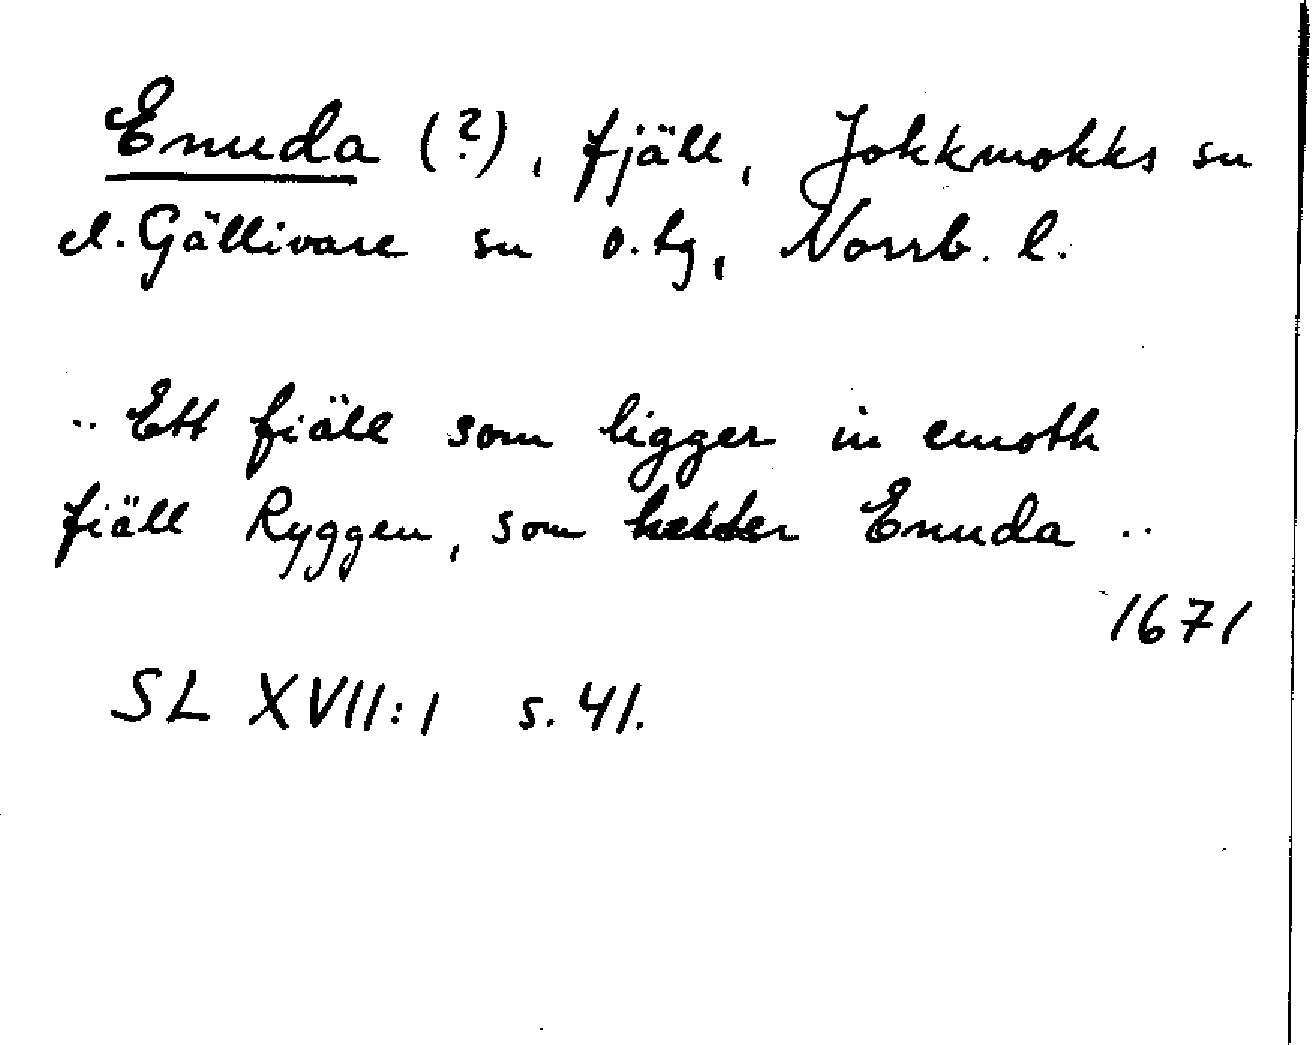 Enuda (?), fjäll, Jokkmokks sn
el. Gällivare sn o. tg, Norrb. l.
.. Ett fiäll som ligger in emoth
fiäll Ryggen, som heeter Enuda ..
1671
SL XVII:1 s. 41.